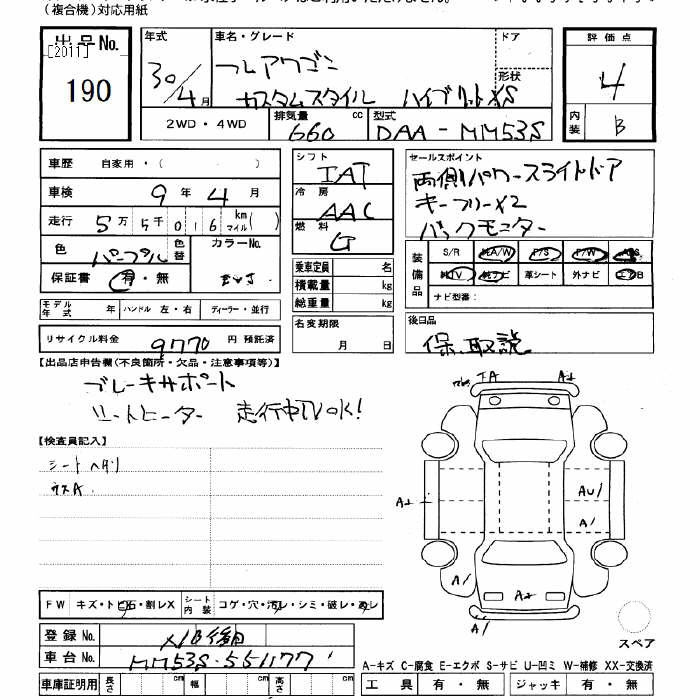 (複合機)対応用紙
出品No.
[2011]
190
年式
30/4月
車名・グレード
フレアワゴン
カスタムスタイル ハイブリッドXS
ドア
形状
評価点
4
内装
B
2WD・4WD
排気量
660 cc
型式
DAA-MM53S
車歴 自家用・( )
車検 9年4月
走行 5万5千016km マイル( )
色 パープル 色替
カラーNo.
保証書 有・無
モデル年式 年 ハンドル 左・右 ディーラー・並行
リサイクル料金 9770円 預託済
シフト
IAT
冷房
AAC
燃料
G
乗車定員 名
積載量 kg
総重量 kg
名変期限
月 日
セールスポイント
両側パワースライドドア
キーフリーX2
バックモニター
装備品
S/R A/W P/S P/W ABS
純TV 純ナビ 革シート 外ナビ エアB
ナビ型番:
後日品
保、取説
【出品店申告欄(不良箇所・欠品・注意事項等)】
ブレーキサポート
シートヒーター 走行中TVOK!
【検査員記入】
シート ヘタリ
ガラスA
A
A2
A2
AU1
A1
A1
A2
A1
スペア
FW キズ・トビ石・割レX
シート内装 コゲ・穴・汚レ・シミ・破レ・スレ
登録No.
車台No. MM53S-551177
車庫証明用 長さ cm 幅 cm 高さ cm
A-キズ C-腐食 E-エクボ S-サビ U-凹ミ W-補修 XX-交換済
工具 有・無 ジャッキ 有・無